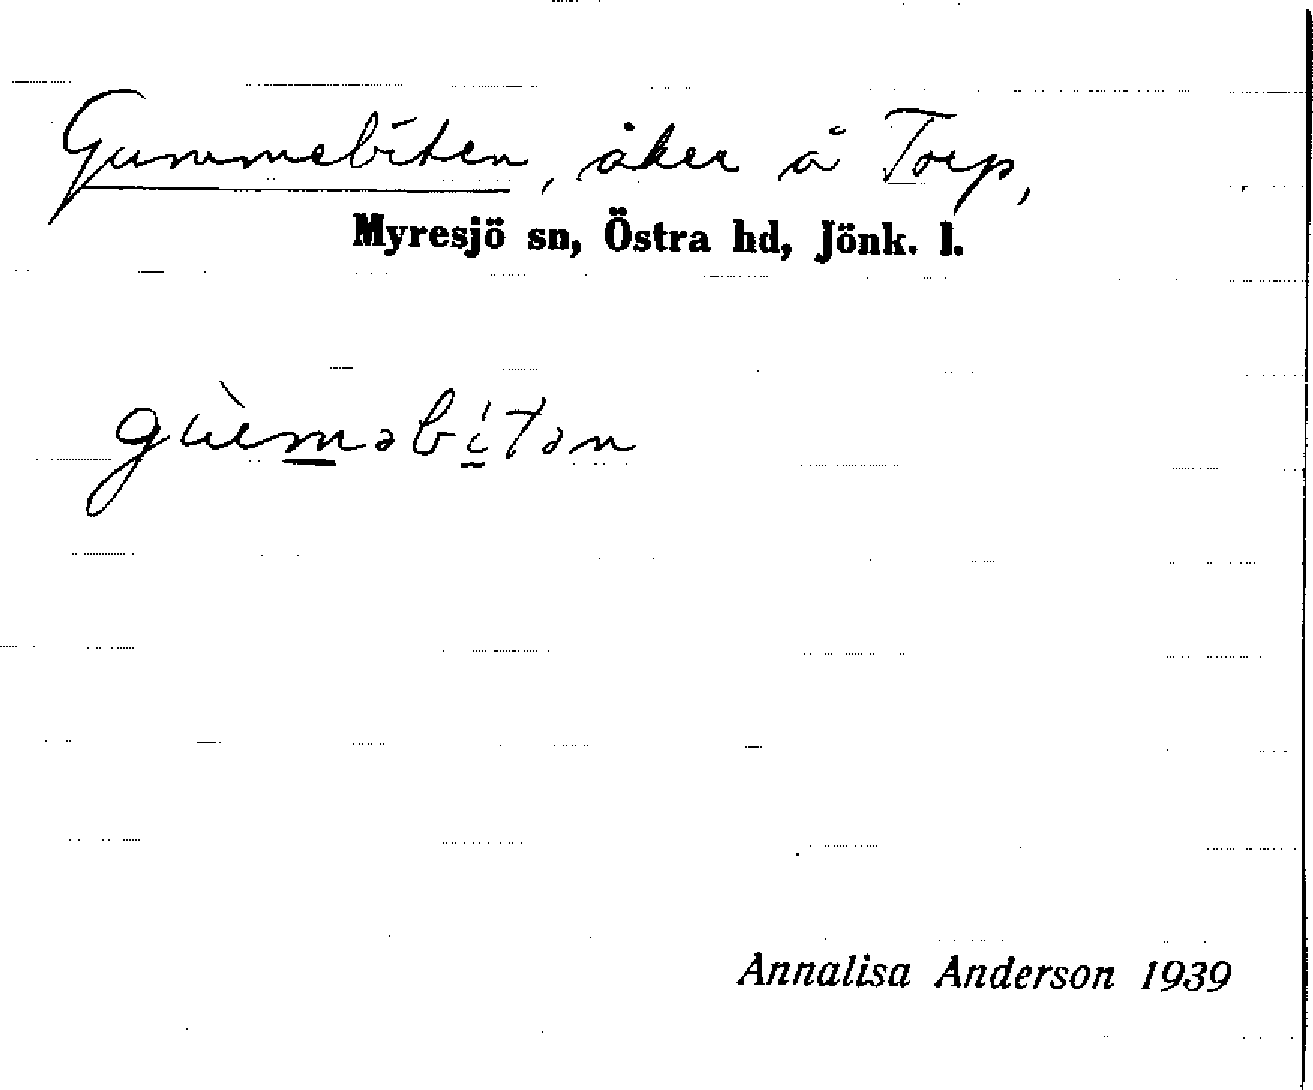 Gummebiten, åker å Torp,
Myresjö sn, Östra hd, Jönk. l.
gùməbi̱tən
Annalisa Anderson 1939